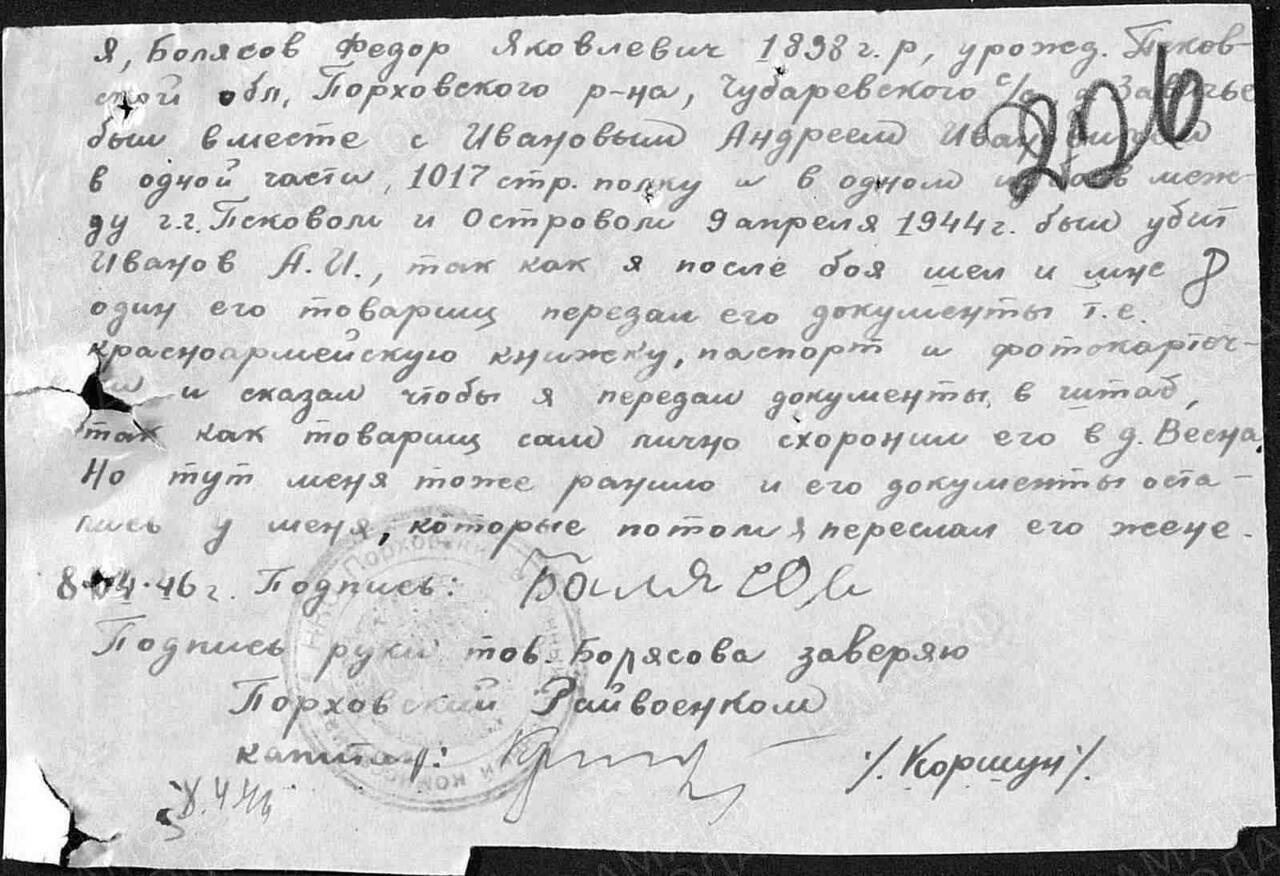 Я, Болясов Федор Яковлевич 1898 г.р, урожд. Псков-
ской обл, Порховского р-на, Чубаревского с/с д.
226
был вместе с Ивановым Андреем Ивановичем
в одной части, 1017 стр. полку и в одном меж-
ду г.г. Псковом и Островом 9 апреля 1944 г. был убит
Иванов А.И., так как я после боя шел и мне
один его товарищ передал его документы т.е.
красноармейскую книжку, паспорт и фотокарточ-
ки и сказал чтобы я передал документы в штаб,
так как товарищ сам лично схоронил его в д. Весна.
Но тут меня тоже ранило и его документы оста-
лись у меня, которые потом я переслал его жене.
8.04.46 г. Подпись:
Подпись руки тов. Борясова заверяю
Порховский Райвоенком
капитан: /.Коршун/.